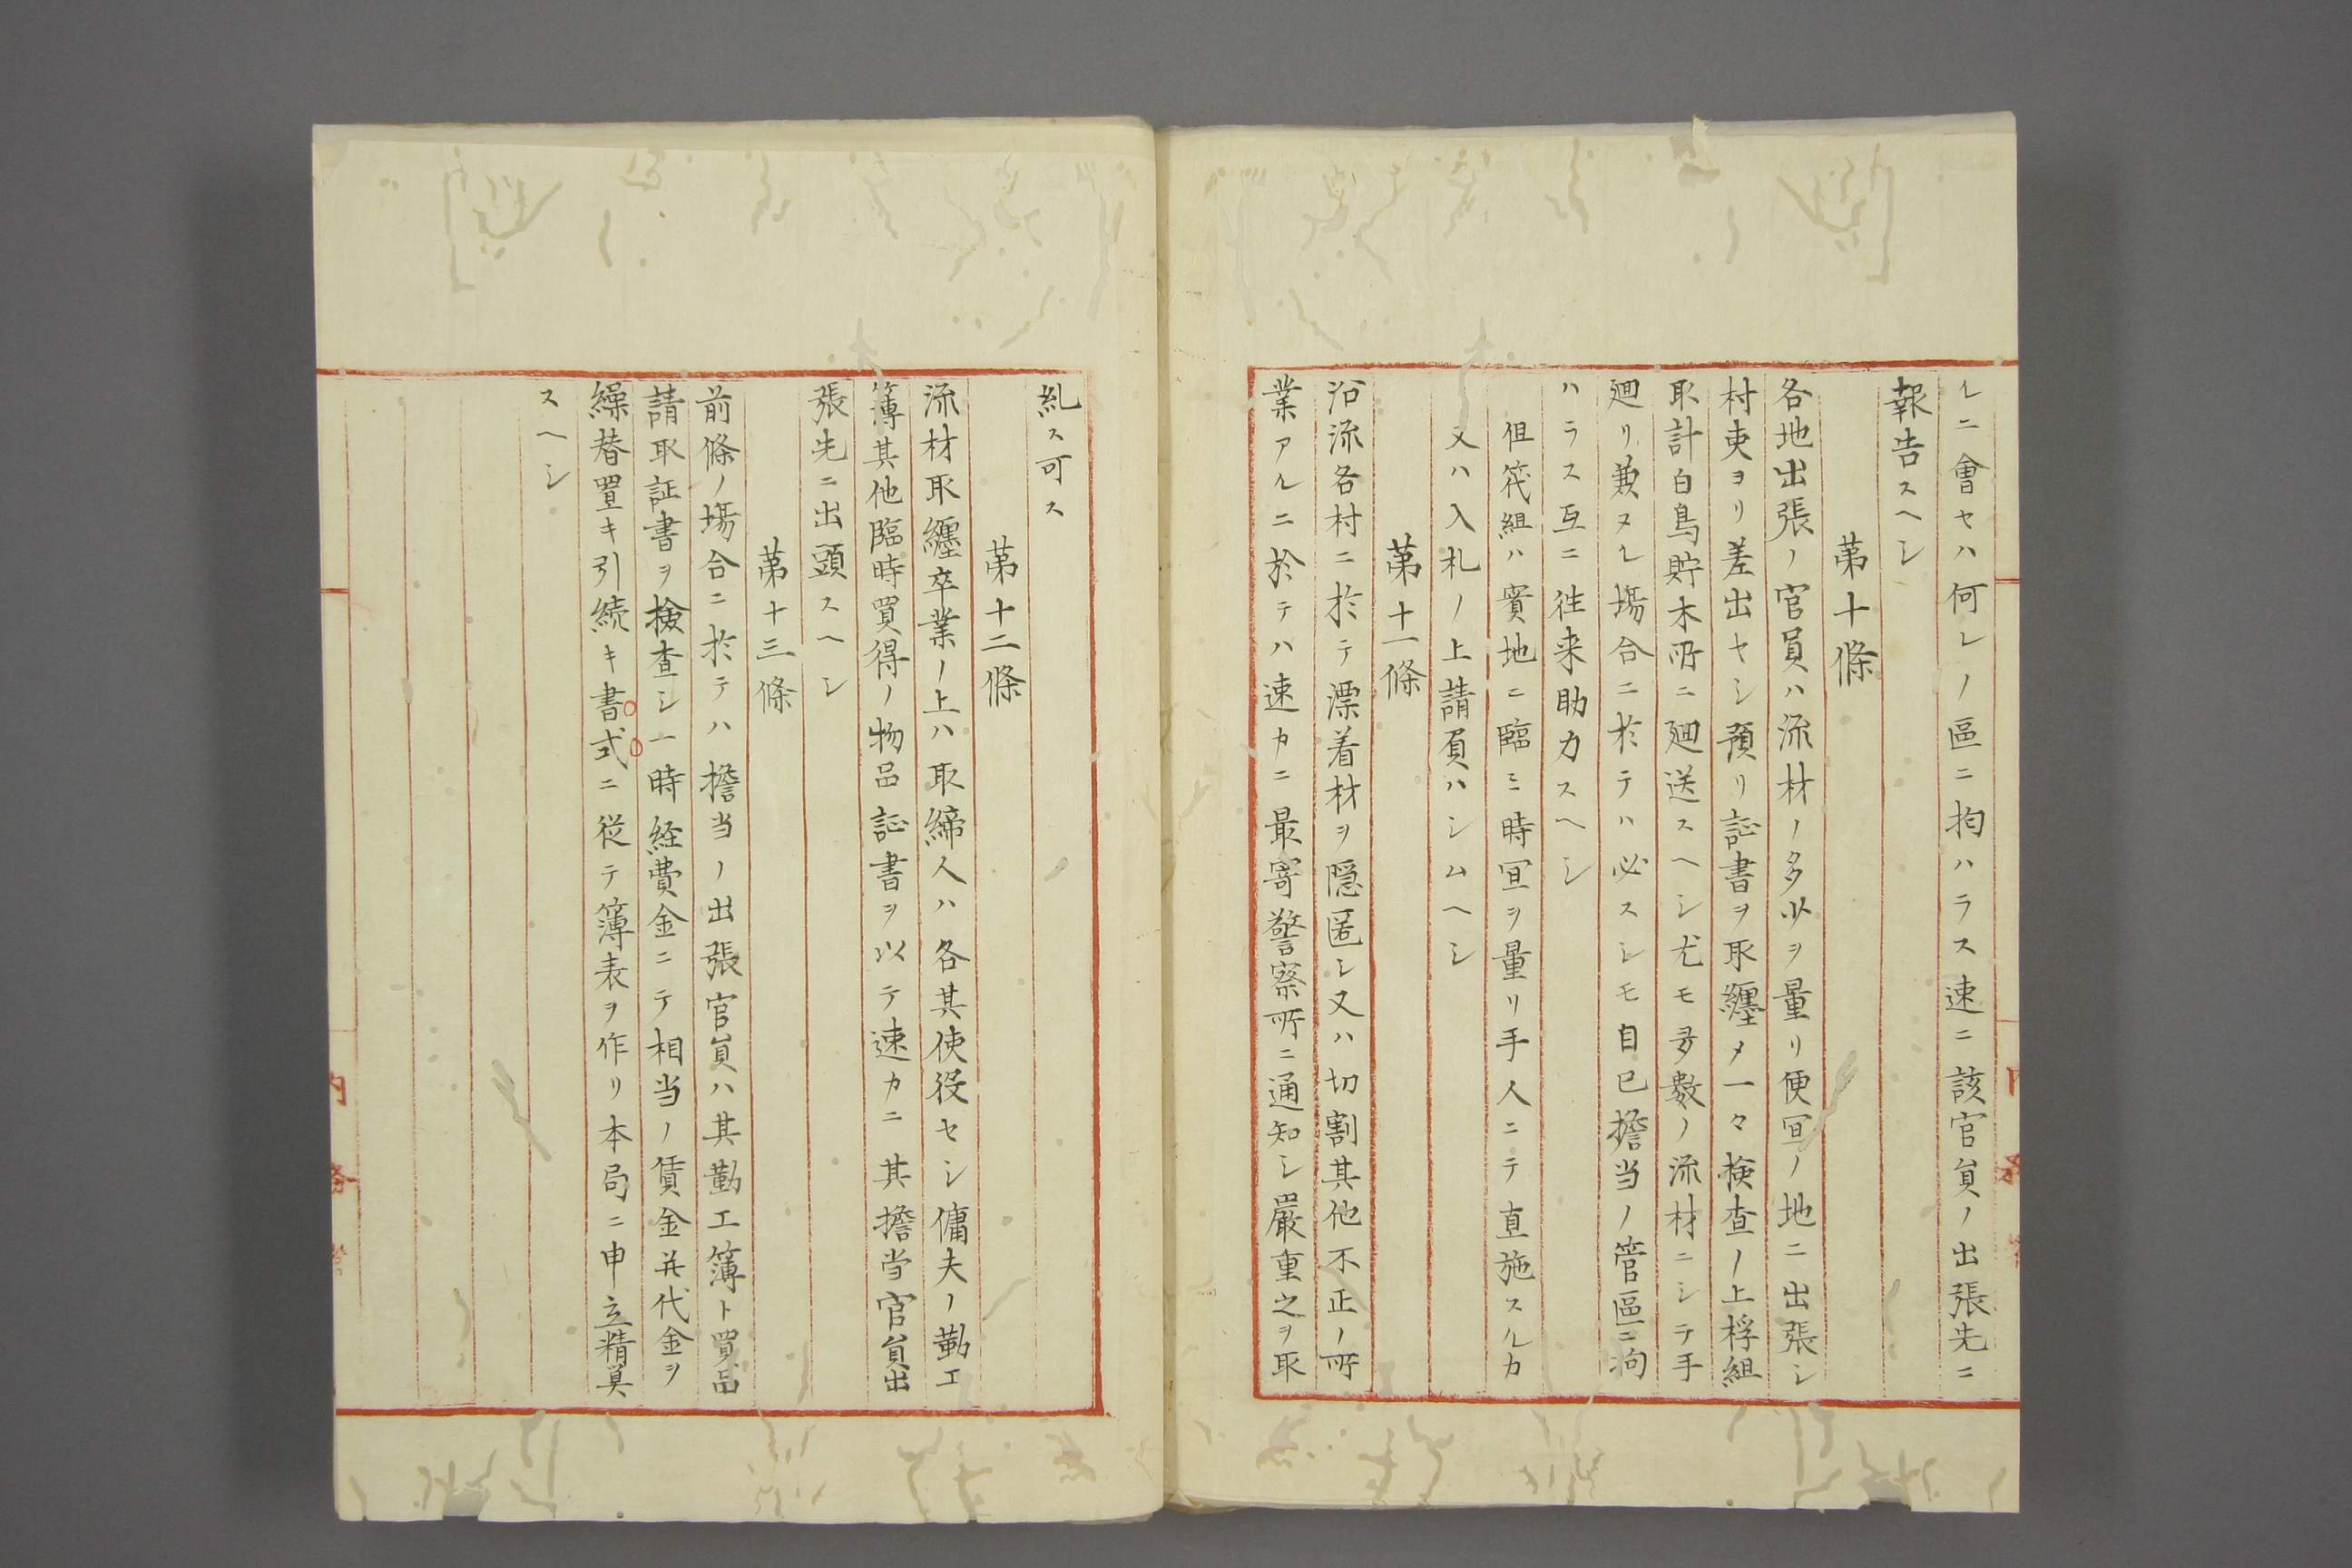 ルニ會セハ何レノ區ニ拘ハラス速ニ該官員ノ出張先ニ
報告スヘシ
第十條
各地出張ノ官員ハ流材ノ多少ヲ量リ便宜ノ地ニ出張シ
村吏ヨリ差出セシ預リ証書ヲ取纏メ一々検査ノ上桴組
取計白鳥貯木所ニ廻送スヘシ尤モ多数ノ流材ニシテ手
廻リ兼ヌル場合ニ於テハ必スシモ自己擔当ノ管區ニ拘
ハラス互ニ往来助力スヘシ
但筏組ハ實地ニ臨ミ時宜ヲ量リ手人ニテ直施スルカ
又ハ入札ノ上請負ハシムヘシ
第十一條
沿流各村ニ於テ漂着材ヲ隠匿シ又ハ切割其他不正ノ所
業アルニ於テハ速カニ最寄警察所ニ通知シ嚴重之ヲ取
糺ス可ス
第十二條
流材取纏卒業ノ上ハ取締人ハ各其使役セシ傭夫ノ勤工
簿其他臨時買得ノ物品証書ヲ以テ速カニ其擔当官員出
張先ニ出頭スヘシ
第十三條
前條ノ場合ニ於テハ擔当ノ出張官員ハ其勤工簿ト買品
請取証書ヲ検査シ一時経費金ニテ相当ノ賃金并代金ヲ
繰替置キ引続キ書式ニ従テ簿表ヲ作リ本局ニ申立精算
スヘシ
内務省